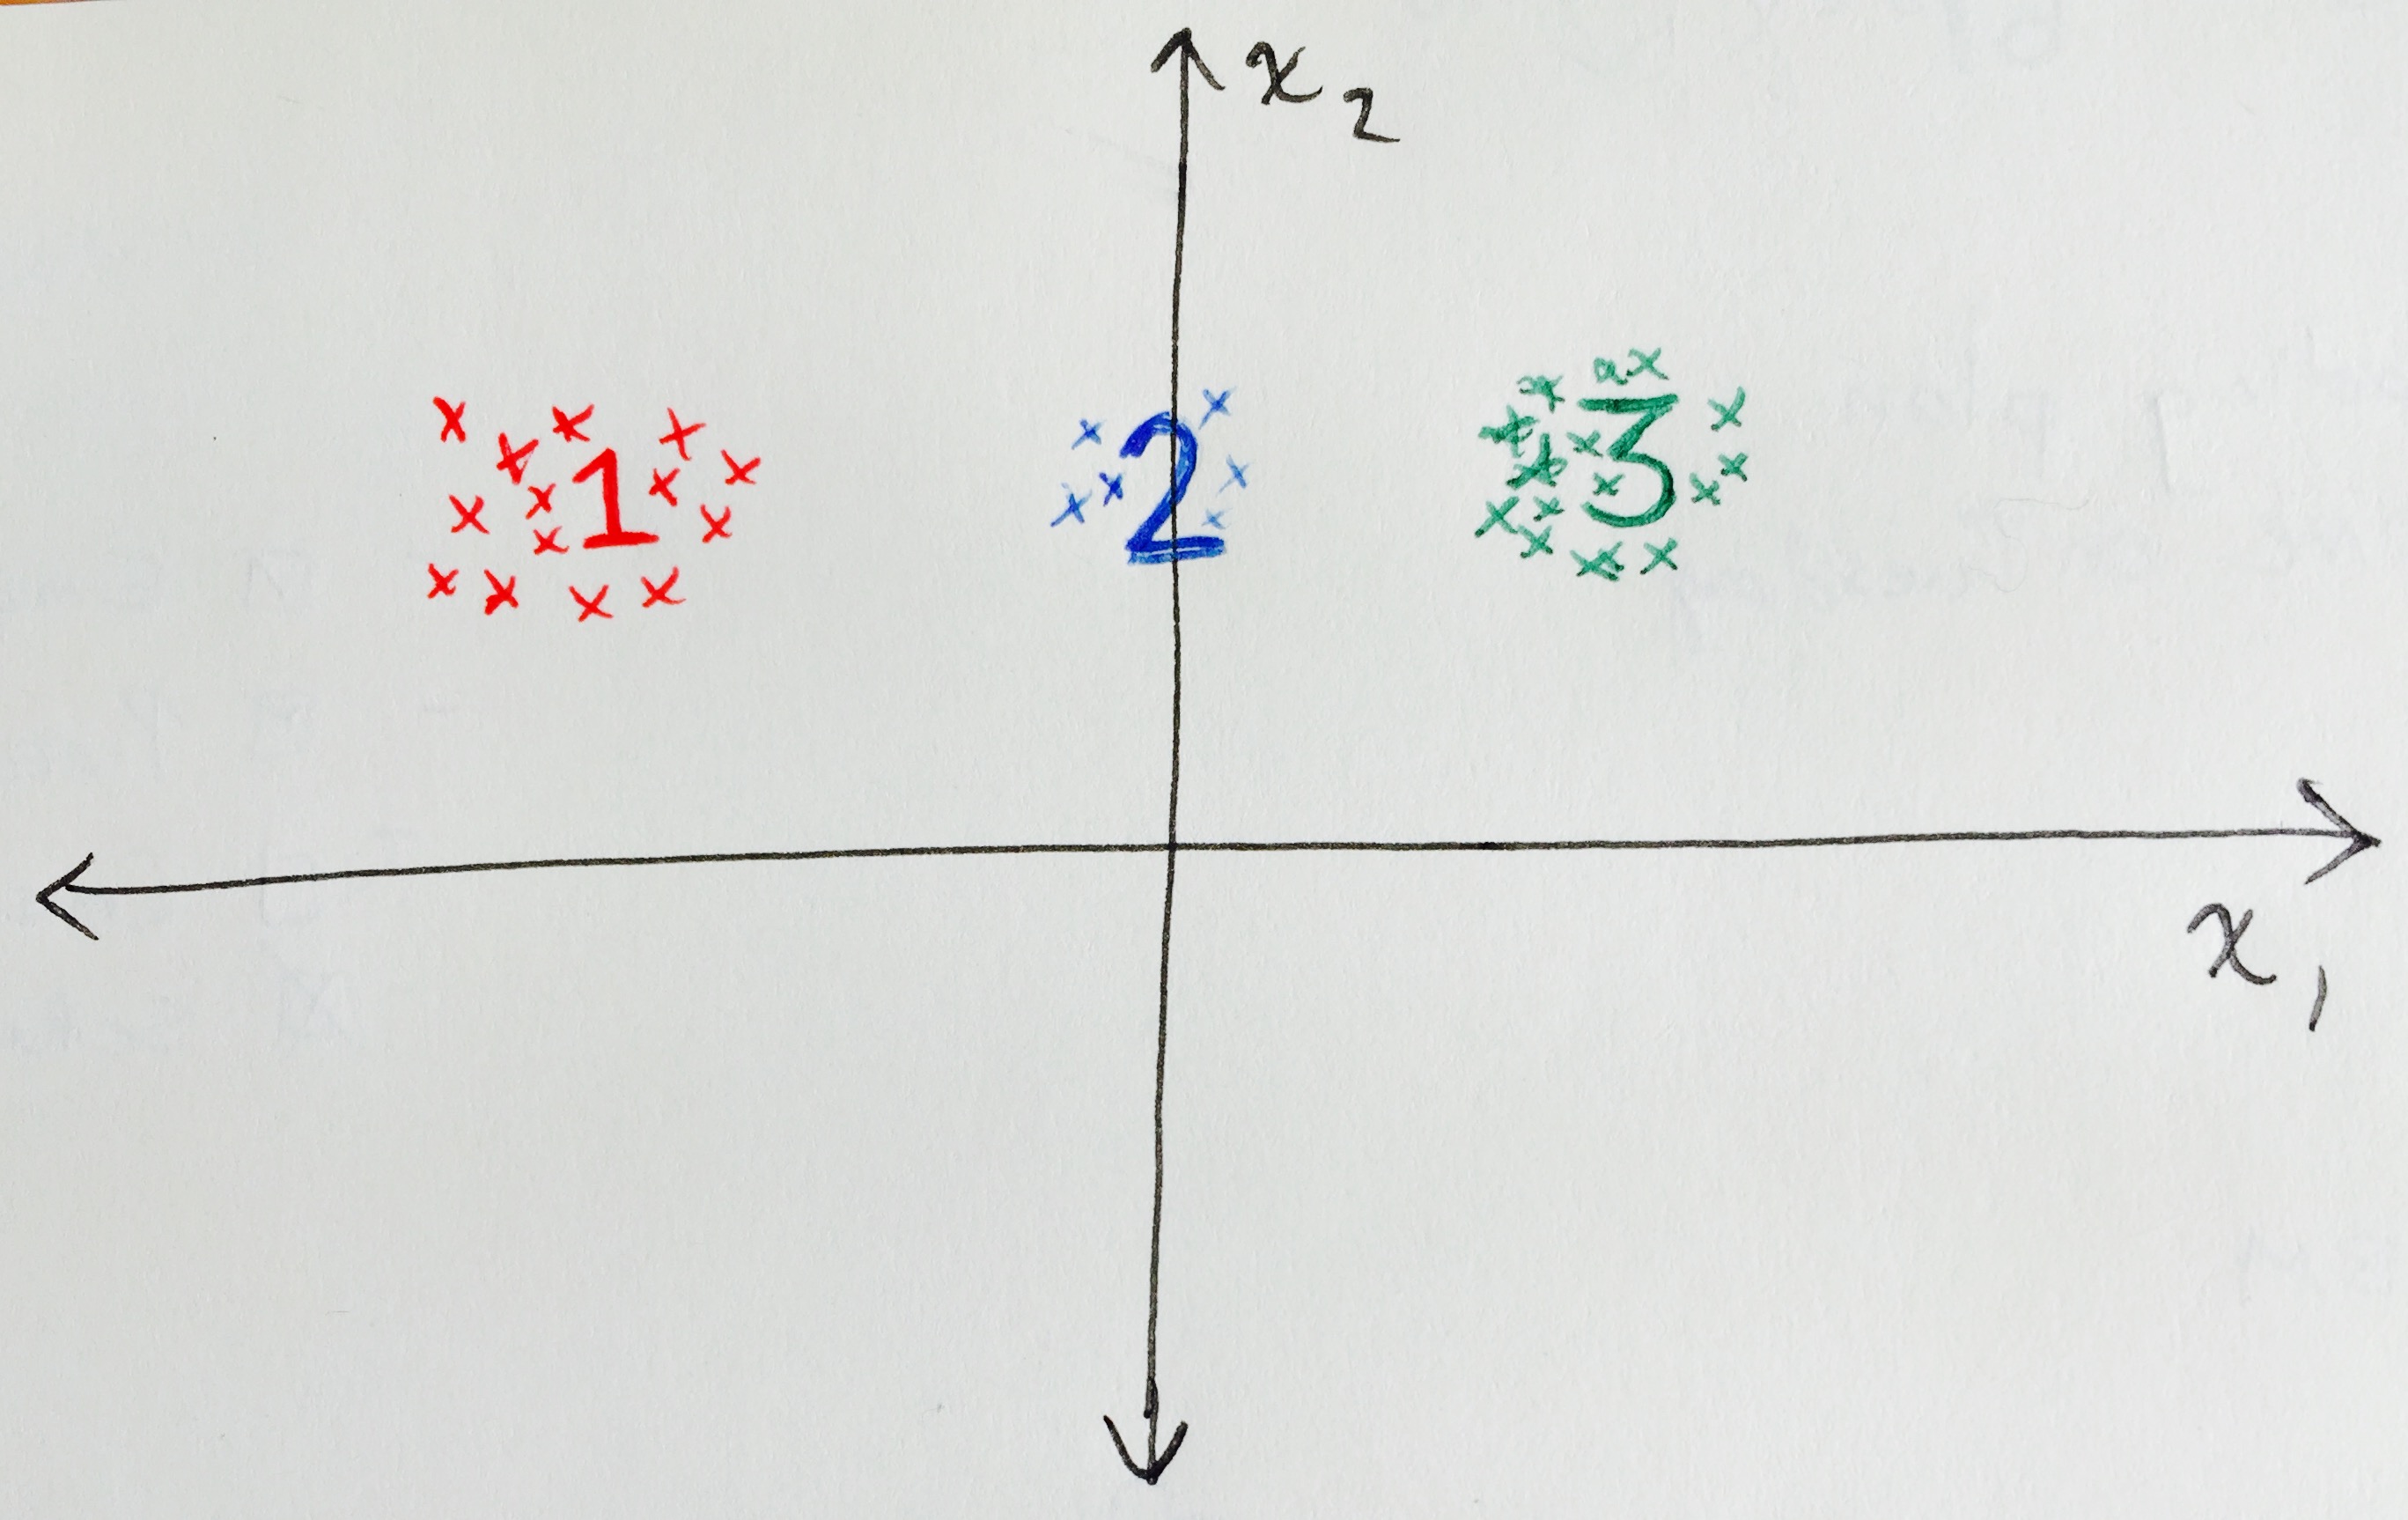 x₂
1 2 3
x₁